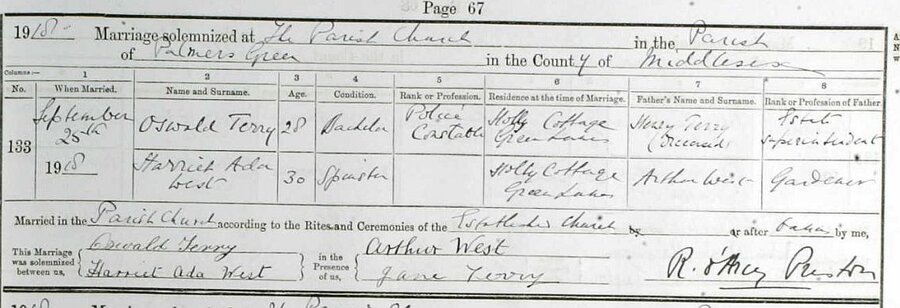 Page 67
1918 Marriage solemnized at The Parish Church in the Parish
of Palmers Green in the County of Middlesex
Columns:— 1 2 3 4 5 6 7 8
No. When Married. Name and Surname. Age. Condition. Rank or Profession. Residence at the time of Marriage. Father's Name and Surname. Rank or Profession of Father.
133 September 25th 1918 Oswald Terry 28 Bachelor Police Constable Holly Cottage Green Lanes Henry Terry (Deceased) Estate Superintendent
Harriet Ada West 30 Spinster Holly Cottage Green Lanes Arthur West Gardener
Married in the Parish Church according to the Rites and Ceremonies of the Established Church by or after Banns by me,
This Marriage was solemnized between us, Oswald Terry in the Presence of us, Arthur West
Harriet Ada West Jane Terry R. d'Arcy Preston